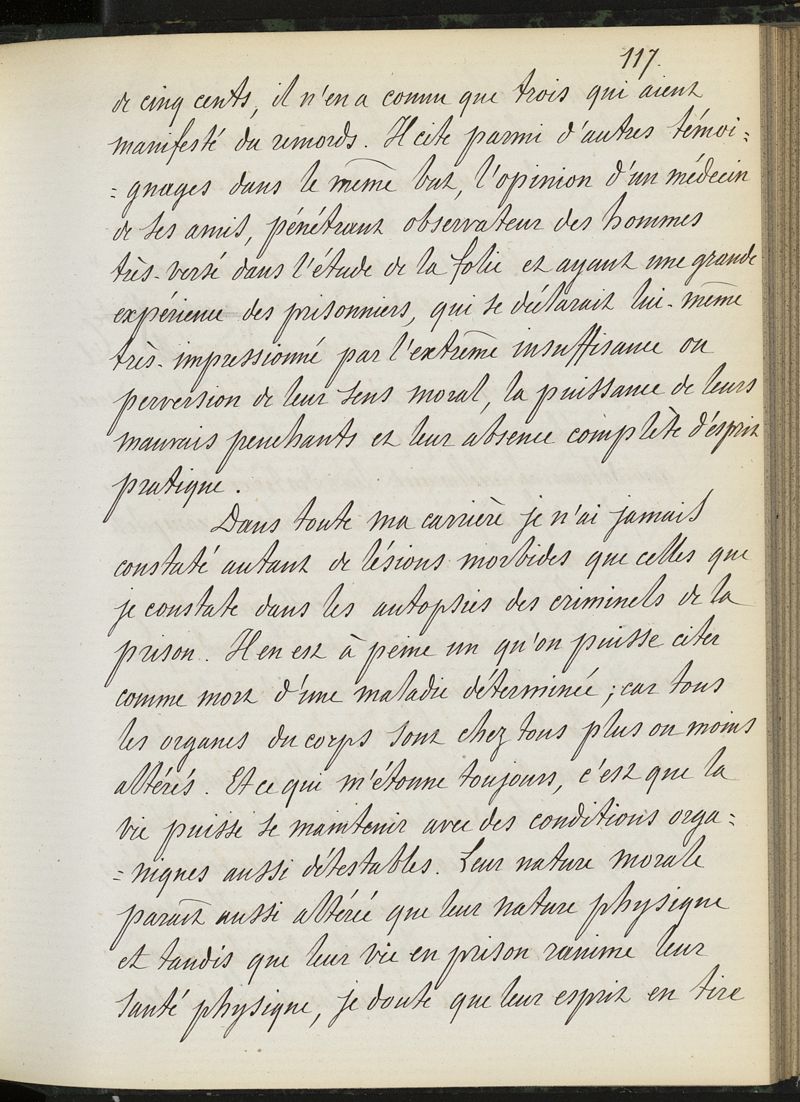 117.
de cinq cents, il n'en a connu que trois qui aient
manifesté du remords. Il cite parmi d'autres témoi=
=gnages dans le même but, l'opinion d'un médecin
de ses amis, pénétrant observateur des hommes
très-versé dans l'étude de la folie et ayant une grande
expérience des prisonniers, qui se déclarait lui-même
très-impressionné par l'extrême insuffisance ou
perversion de leur sens moral, la puissance de leurs
mauvais penchants et leur absence complète d'esprit
pratique.
Dans toute ma carrière je n'ai jamais
constaté autant de lésions morbides que celles que
je constate dans les autopsies des criminels de la
prison. Il en est à peine un qu'on puisse citer
comme mort d'une maladie déterminée ; car tous
les organes du corps sont chez tous plus ou moins
altérés. Et ce qui m'étonne toujours, c'est que la
vie puisse se maintenir avec des conditions orga=
=niques aussi détestables. Leur nature morale
paraît aussi altérée que leur nature physique
et tandis que leur vie en prison ranime leur
santé physique, je doute que leur esprit en tire